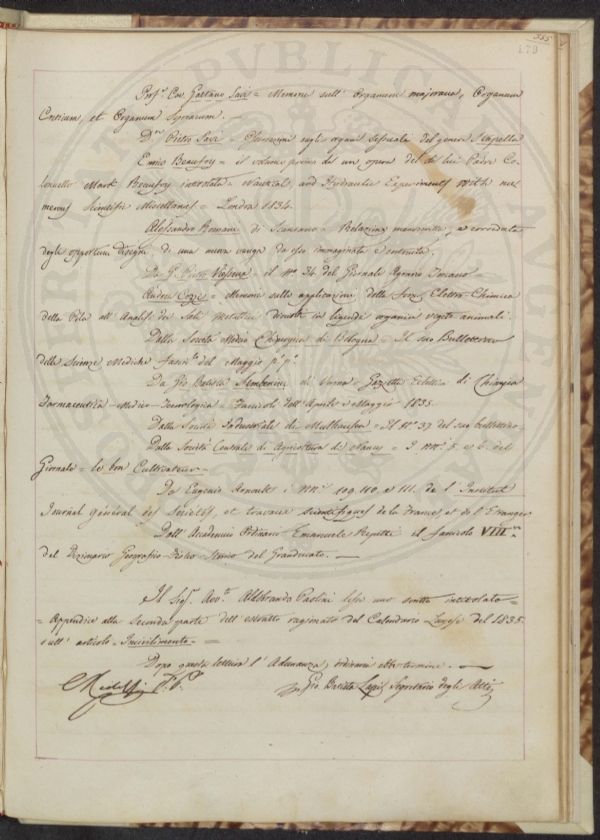 355
179
Prof.r Cav. Gaetano Savi = Memorie sull' Origanum majorana, Origanum
Creticum, et Origanum Syriacum.
D.re Pietro Savi = Osservazioni sugli organi sessuali del genere Stapelia
Enrico Beaufoy = il volume primo di un opera del di lui Padre Co-
lonnello Mark Beaufoy intitolata = Nautical and Hydraulic Experiments with nu-
merous Scientific Miscellanies = Londra 1834.
Alessandro Romani di Scansano = Relazione manoscritta, e corredata
degli opportuni disegni di una nuova vanga da esso immaginata e costruita.
Da G. Pietro = il N.o 34 del Giornale Agrario Toscano =
Andrea Cozzi = Memorie sulle applicazioni della forza Elettro-Chimica
della Pila all' Analisi dei Sali Metallici disciolti in liquidi organici vegeto animali.
Dalla Società Medico Chirurgica di Bologna = Il suo Bullettino
delle Scienze Mediche fasc.lo del Maggio p.o p.o
Da Gio Batista Sembenini di Verona = Gazzetta Eclettica di Chimica
Farmaceutica-Medico-Tecnologica = Fascicoli dell' Aprile e Maggio 1835.
Dalla Società Industriale di Mulhausen = Il N.o 37 del suo bullettino =
Dalla Società Centrale di Agricoltura di Nancy = I NN.i 5. e 6. del
Giornale = le bon Cultivateur =
De Eugenio Arnoult i NN.i 109, 110, e 111. de l' Institut
Journal général des Sociétés, et travaux scientifiques de la France et de l' Etranger
Dall' Accademico Ordinario Emanuele Repetti il fascicolo VIII.vo
del Dizionario Geografico-Fisico-Storico del Granducato. —
Il Sig.r Avv.to Aldobrando Paolini lesse uno scritto intitolato =
= Appendice alla Seconda parte dell' estratto ragionato del Calendario Lunese del 1835.
sull' articolo = Incivilimento =
Dopo questa lettura l' Adunanza ordinaria ebbe termine. —
Ridolfi P.e
Gio. Batista Lapi, Segretario degli Atti